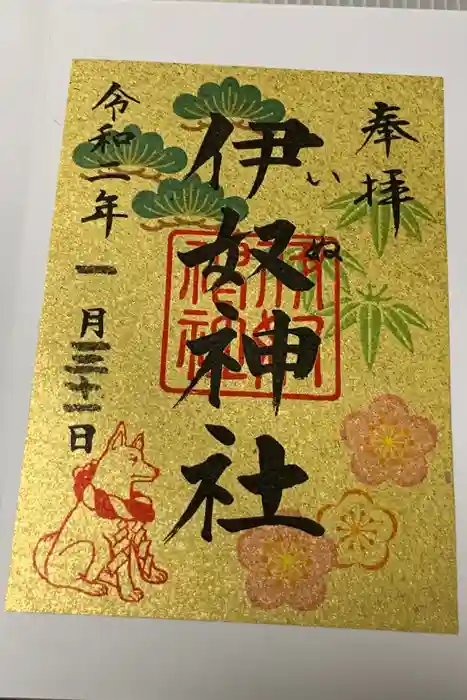 奉拝
伊奴神社
いぬ
令和二年
一月三十一日